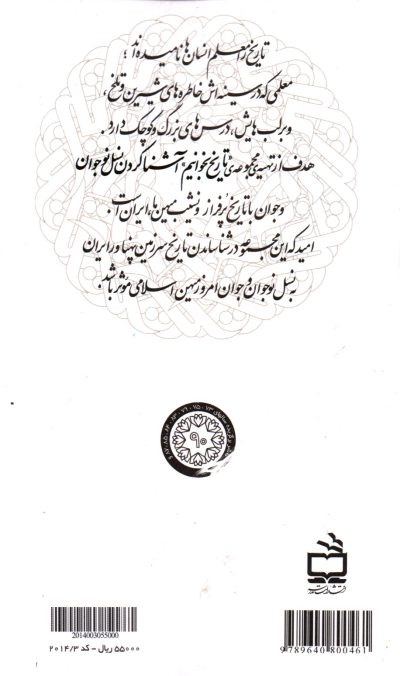 تاریخ را معلم انسان‌ها نامیده‌اند؛
معلمی که در سینه‌اش خاطره‌های شیرین و تلخ،
و بر لب‌هایش، درس‌های بزرگ و کوچک دارد.
هدف از تهیهٔ مجموعه‌ی «تاریخ بخوانیم»، آشنا کردن نسل نوجوان
و جوان با تاریخ پرفراز و نشیب میهن ما، ایران است.
امید که این مجموعه در شناساندن تاریخ سرزمین پهناور ایران
به نسل نوجوان و جوان امروز میهن اسلامی مؤثر باشد.
۹۰
انتشارات مدرسه
2014003055000
۵۵۰۰۰ ریال - کد ۲۰۱۴/۳
9789640800461